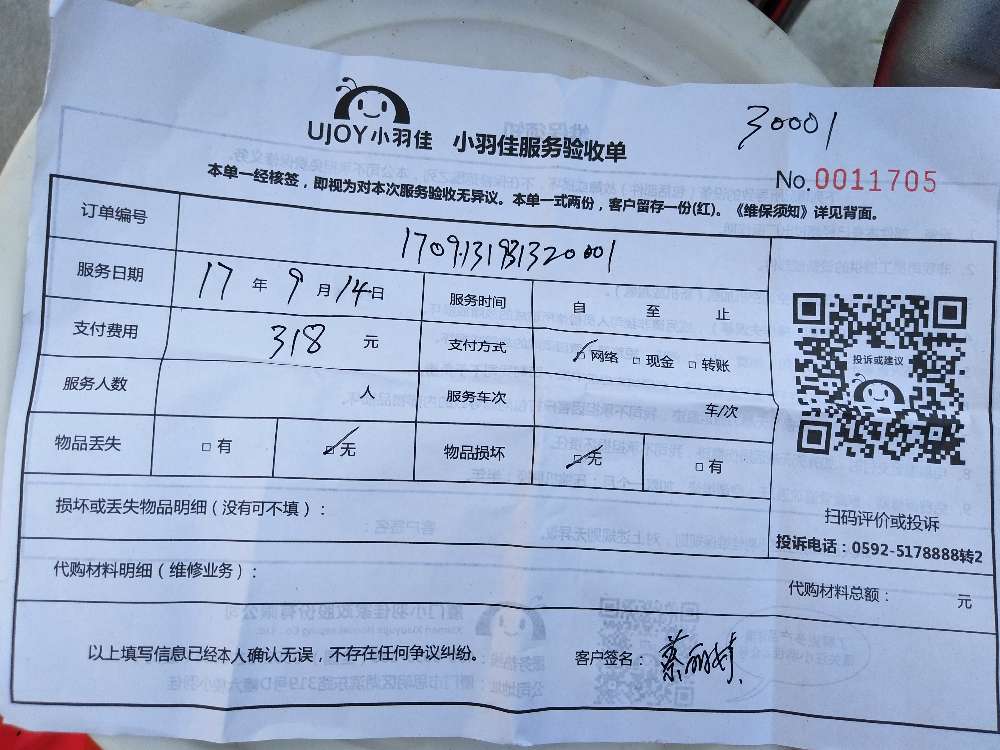 30001
UJOY小羽佳 小羽佳服务验收单
No.0011705
本单一经核签，即视为对本次服务验收无异议。本单一式两份，客户留存一份(红)。《维保须知》详见背面。
订单编号
服务日期 17 年 9 月 14 日 服务时间 自 至 止
支付费用 318 元 支付方式 □网络 □现金 □转账
服务人数 人 服务车次 车/次
投诉或建议
物品丢失 □有 □无 物品损坏 □无 □有
损坏或丢失物品明细（没有可不填）：
扫码评价或投诉
投诉电话：0592-5178888转2
代购材料明细（维修业务）：
代购材料总额： 元
以上填写信息已经本人确认无误，不存在任何争议纠纷。 客户签名：